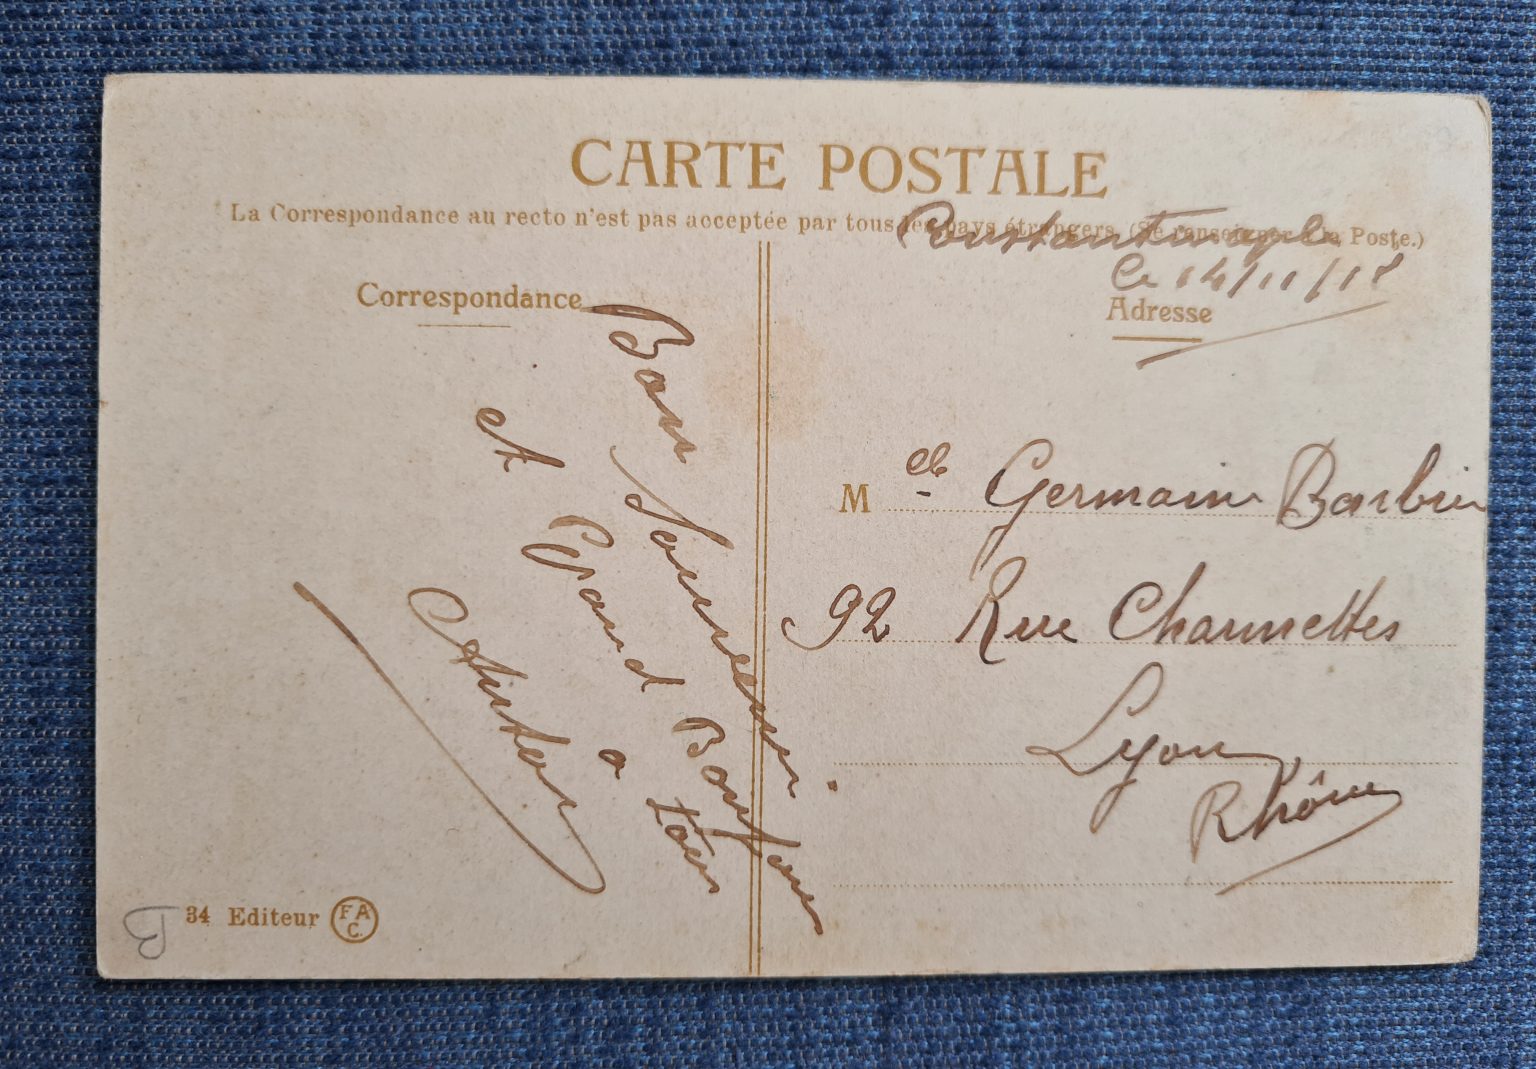 CARTE POSTALE
La Correspondance au recto n'est pas acceptée par tous les pays étrangers. (Se renseigner à la Poste.)
Constantinople
le 14/11/18
Correspondance
Adresse
Bon Souvenir
et Grand Bonjour
a tous
Anton
M elle Germain Barbier
92 Rue Charmettes
Lyon
Rhône
34 Editeur FAC.
B